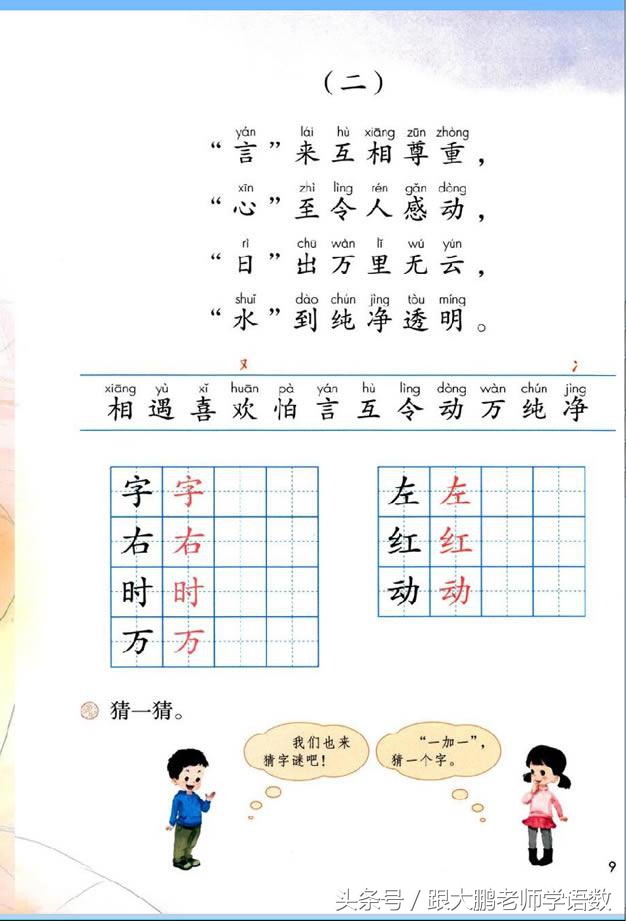 （二）
yán lái hù xiāng zūn zhòng
“言”来互相尊重，
xīn zhì lìng rén gǎn dòng
“心”至令人感动，
rì chū wàn lǐ wú yún
“日”出万里无云，
shuǐ dào chún jìng tòu míng
“水”到纯净透明。
又 冫
xiāng yù xǐ huān pà yán hù lìng dòng wàn chún jìng
相遇喜欢怕言互令动万纯净
字 字 左 左
右 右 红 红
时 时 动 动
万 万
猜一猜。
我们也来
猜字谜吧！
“一加一”，
猜一个字。
9
头条号 / 跟大鹏老师学语数